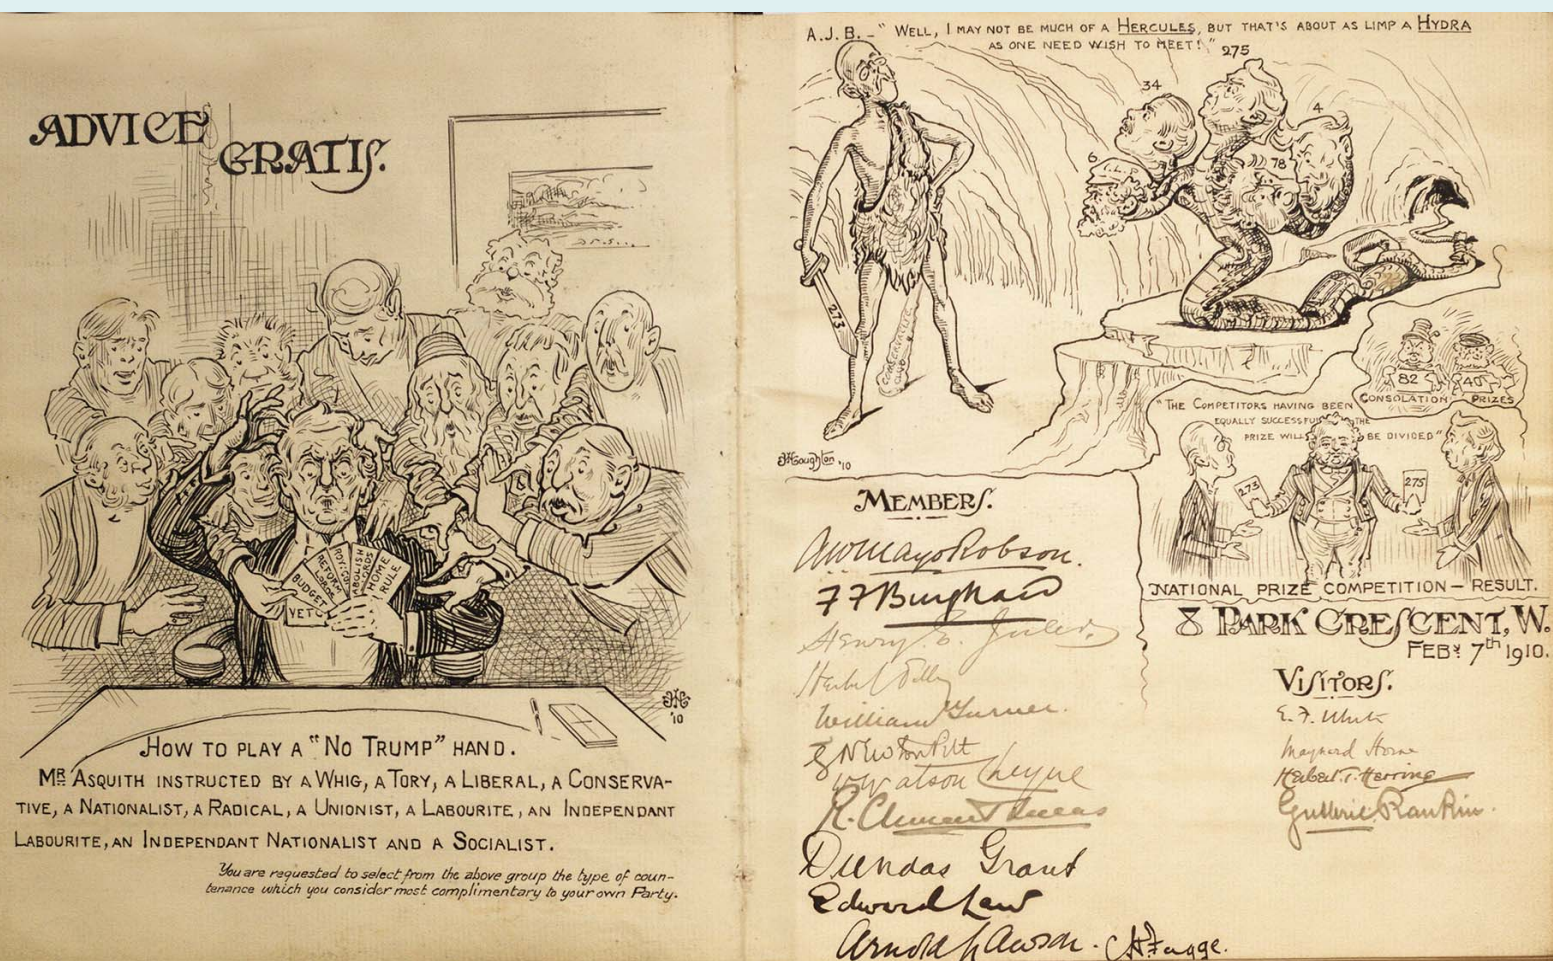 ADVICE
GRATIS.
BUDGET
REFORM
LORDS
ABOLISH
LORDS
HOME
RULE
VETO
'10
HOW TO PLAY A "NO TRUMP" HAND.
MR ASQUITH INSTRUCTED BY A WHIG, A TORY, A LIBERAL, A CONSERVA-
TIVE, A NATIONALIST, A RADICAL, A UNIONIST, A LABOURITE, AN INDEPENDANT
LABOURITE, AN INDEPENDANT NATIONALIST AND A SOCIALIST.
You are requested to select from the above group the type of coun-
tenance which you consider most complimentary to your own Party.
A.J.B. - "WELL, I MAY NOT BE MUCH OF A HERCULES, BUT THAT'S ABOUT AS LIMP A HYDRA
AS ONE NEED WISH TO MEET!"
275
34
4
6
78
273
82
40
CONSOLATION PRIZES
"THE COMPETITORS HAVING BEEN
EQUALLY SUCCESSFUL THE
PRIZE WILL BE DIVIDED"
273
275
JHoughton '10
NATIONAL PRIZE COMPETITION — RESULT.
8 PARK CRESCENT, W.
FEBY 7th 1910.
MEMBERS.
AWMayoRobson.
FFBurghard
Henry E. Juler
Herbert Tilley
William Turner.
G Newton Pitt
W Watson Cheyne
R. Clement Lucas
Dundas Grant
Edward Law
Arnold Lawson. CHFagge.
VISITORS.
E. F. White
Maynard Horne
Herbert T. Herring
Guthrie Rankin.